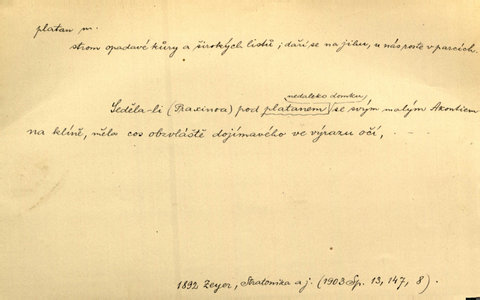 platan m.
strom opadavé kůry a širokých listů; daří se na jihu, u nás roste v parcích.
nedaleko domku,
Seděla-li (Praxinoa) pod platanem se svým malým Akontiem
na klíně, měla cos obzvláště dojímavého ve výrazu očí, . –
1892 Zeyer, Stratonika a j. (1903 Sp. 13, 147, 8)